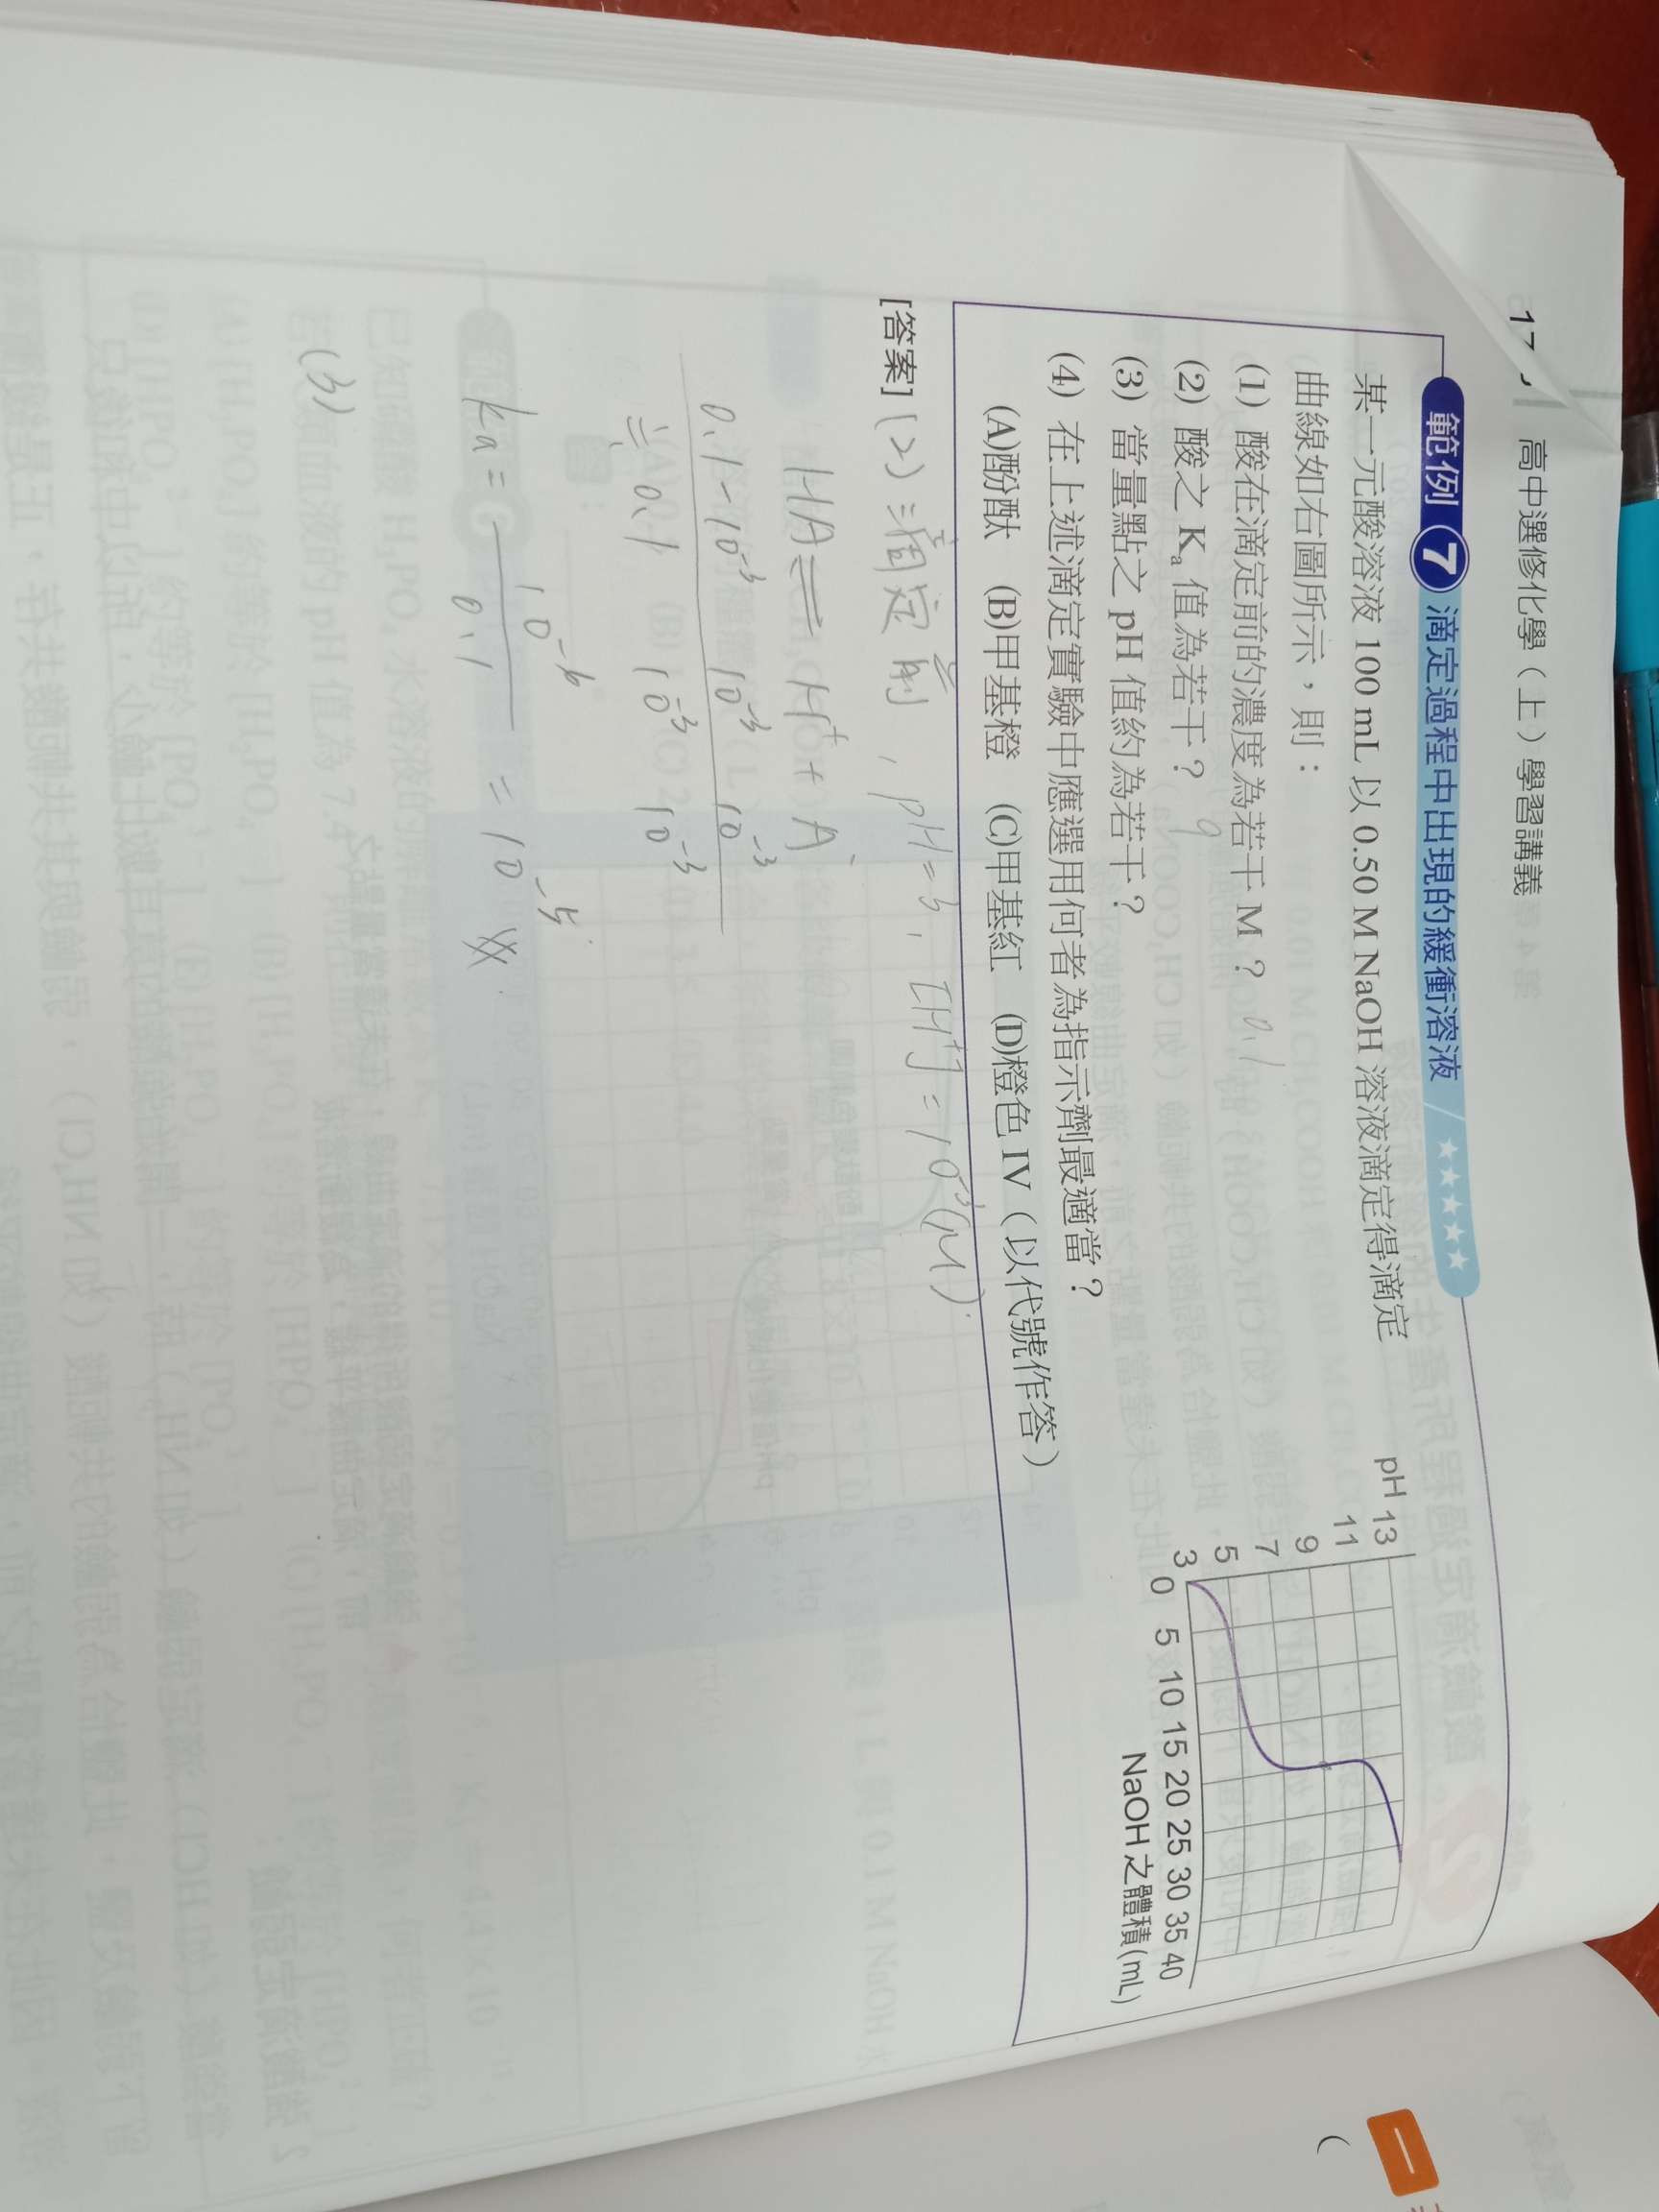 高中選修化學（上）學習講義
範例 7 滴定過程中出現的緩衝溶液 ★★★★★
某一元酸溶液 100 mL 以 0.50 M NaOH 溶液滴定得滴定
曲線如右圖所示，則：
(1) 酸在滴定前的濃度為若干 M？ 0.1
(2) 酸之 Ka 值為若干？
(3) 當量點之 pH 值約為若干？ 9
(4) 在上述滴定實驗中應選用何者為指示劑最適當？
(A)酚酞 (B)甲基橙 (C)甲基紅 (D)橙色 IV（以代號作答）
pH 13
11
9
7
5
3
0 5 10 15 20 25 30 35 40
NaOH 之體積(mL)
[答案] (2) 滴定前, pH=3, [H⁺]=10⁻³(M).
HA ⇌ H⁺ + A⁻
0.1-10⁻³ 10⁻³ 10⁻³
≒0.1 10⁻³ 10⁻³
ka = 10⁻⁶ / 0.1 = 10⁻⁵
(3)
一
(